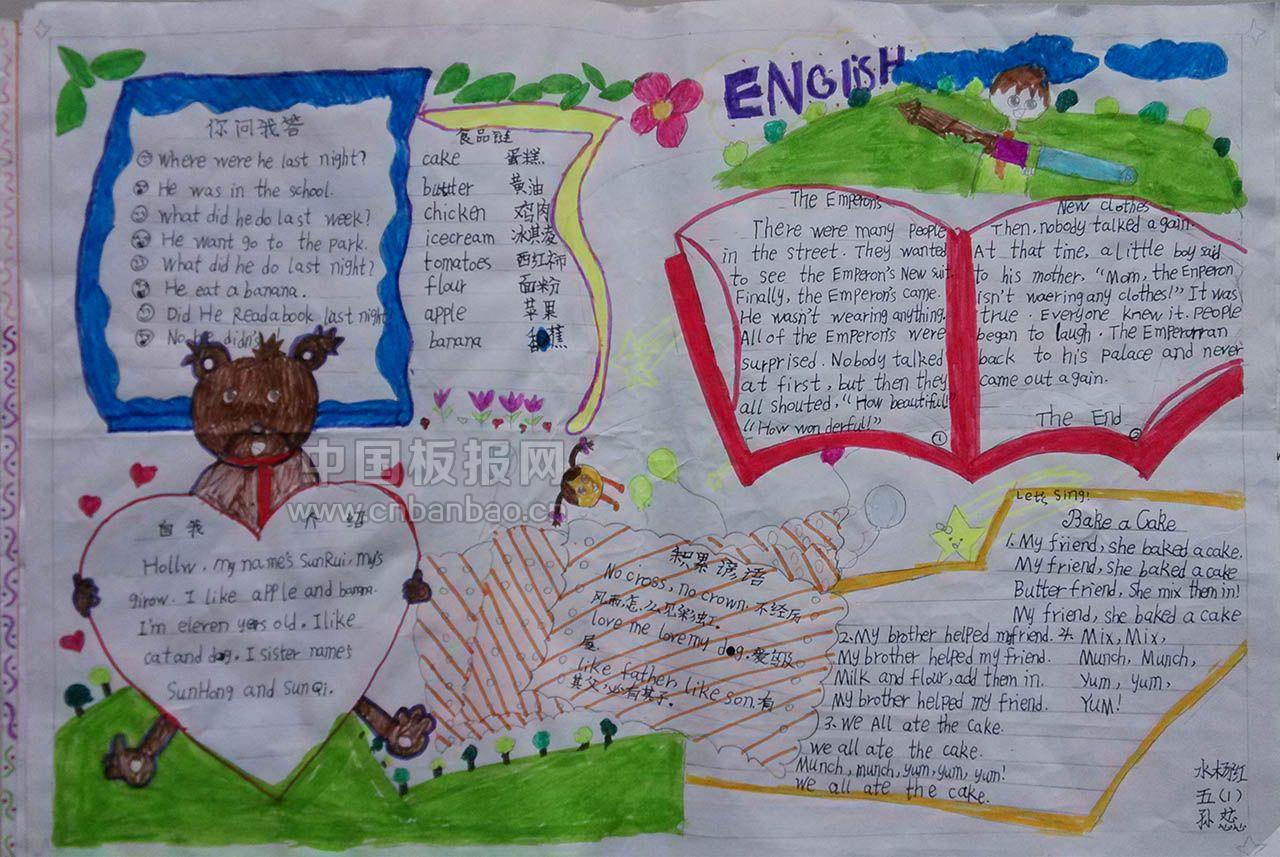 ENGlisH
你问我答
Where were he last night?
He was in the school.
What did he do last week?
He want go to the park.
What did he do last night?
He eat a banana.
Did He Read a book last night
No, he didn's
食品链
cake 蛋糕
butter 黄油
chicken 鸡肉
icecream 冰淇凌
tomatoes 西红柿
flour 面粉
apple 苹果
banana 香蕉
The Emperon's
There were many People
in the street. They wanted
to see the Emperon's New suit.
Finally, the Emperon's came.
He wasn't wearing anything.
All of the Emperon's were
surprised. Nobody talked
at first, but then they
all shouted, "How beautiful!"
"How wonderful!"
1
New clothes
Then, nobody talked again.
At that tine, a little boy said
to his mother, "Mom, the Enperon
isn't waering any clothes!" It was
true. Everyone knew it. People
began to laugh. The Emperorran
back to his palace and never
came out again.
The End
2
中国板报网
www.cnbanbao.c
自我介绍
Hollw. my name's SunRui, my's
girow. I like apple and banana.
I'm eleven years old. I like
cat and dog. I sister names
SunHong and SunQi.
积累谚语
No cross, no crown. 不经历
风雨,怎么见彩虹.
love me love my dog. 爱乌及
屋.
like father, like son. 有
其父必有其子.
Let's Sing!
Bake a Cake
1. My friend, she baked a cake.
My friend, she baked a cake
Butter friend, She mix them in!
My friend, she baked a cake
2. My brother helped my friend.
My brother helped my friend.
Milk and flour, add them in.
My brother helped my friend.
3. We All ate the cake.
we all ate the cake.
Munch, munch, yum, yum, yum!
We all ate the cake.
4. Mix, Mix,
Munch, Munch,
Yum, yum,
YUM!
水杨红
五(1)
孙